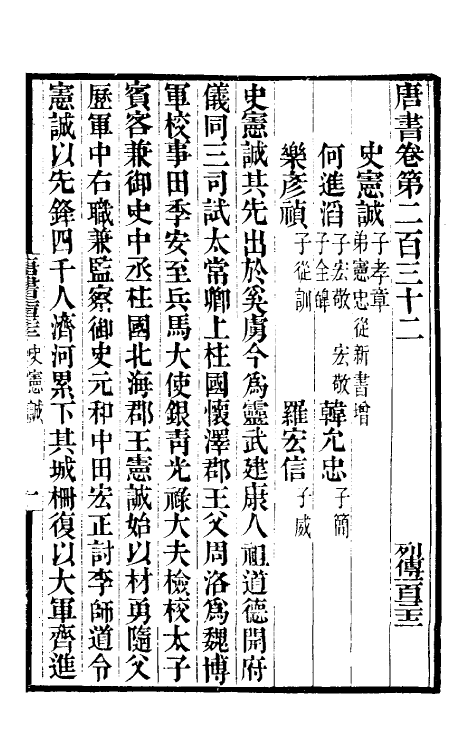 唐書卷第二百三十二　列傳一百三十二
史憲誠 子孝章 弟憲忠從新書增
何進滔 子宏敬 子全皞 宏敬 韓允忠 子簡
樂彥禎 子從訓 羅宏信 子威
史憲誠其先出於奚虜今爲靈武建康人祖道德開府
儀同三司試太常卿上柱國懷澤郡王父周洛爲魏博
軍校事田季安至兵馬大使銀青光祿大夫檢校太子
賓客兼御史中丞柱國北海郡王憲誠始以材勇隨父
歷軍中右職兼監察御史元和中田宏正討李師道令
憲誠以先鋒四千人濟河累下其城柵復以大軍齊進
史憲誠 一